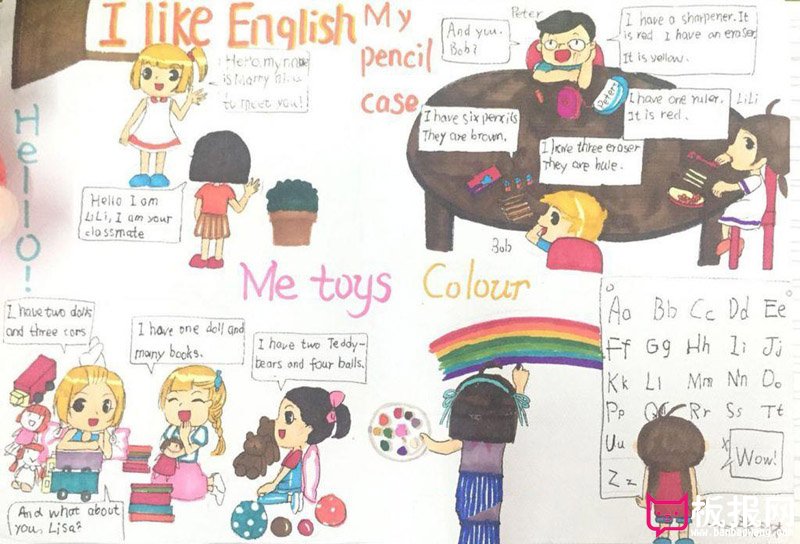 I like English
My
pencil
case
Hello!
Hello, my name
is Marry
to meet you!
Hello I am
LiLi, I am your
classmate
Peter
And you.
Bob?
I have a sharpener. It
is red I have an eraser
It is yellow.
Peter
I have one ruler.
It is red.
LiLi
I have six pencils
They are brown.
I have three eraser
They are bule.
Bob
Me toys
Colour
I have two dolls
and three cars
I have one doll and
many books.
I have two Teddy-
bears and four balls.
And what about
you, Lisa?
Aa Bb Cc Dd Ee
Ff Gg Hh Ii Jj
Kk Ll Mm Nn Oo
Pp Qq Rr Ss Tt
Uu
Zz
Wow!
板报网